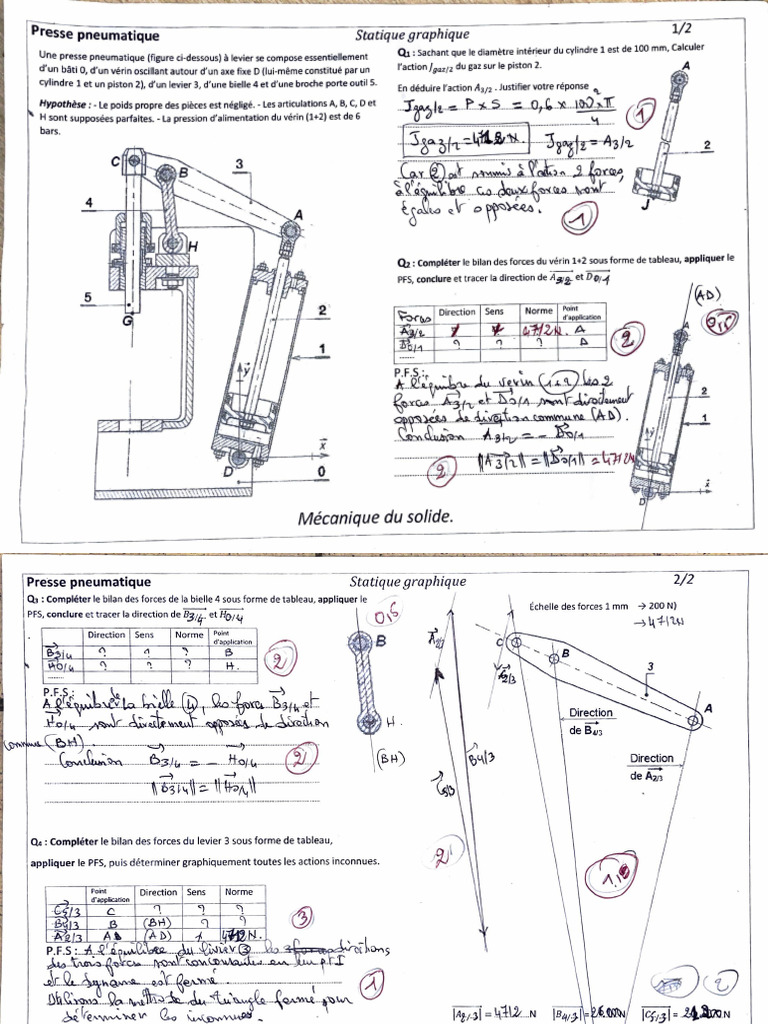 Presse pneumatique
Statique graphique
1/2
Une presse pneumatique (figure ci-dessous) à levier se compose essentiellement
d'un bâti 0, d'un vérin oscillant autour d'un axe fixe D (lui-même constitué par un
cylindre 1 et un piston 2), d'un levier 3, d'une bielle 4 et d'une broche porte outil 5.
Hypothèse : - Le poids propre des pièces est négligé. - Les articulations A, B, C, D et
H sont supposées parfaites. - La pression d'alimentation du vérin (1+2) est de 6
bars.
C
B
3
4
A
H
5
G
2
1
y
x
D
0
Q1 : Sachant que le diamètre intérieur du cylindre 1 est de 100 mm, Calculer
l'action Jgaz/2 du gaz sur le piston 2.
En déduire l'action A3/2 . Justifier votre réponse
Jgaz/2 = P x S = 0,6 x 100² x π
4
Jgaz/2 = 4712 N. Jgaz/2 = A3/2
Car (2) est soumis à l'action 2 forces,
à l'équilibre ces deux forces sont
égales et opposées.
1
1
A
2
J
Q2 : Compléter le bilan des forces du vérin 1+2 sous forme de tableau, appliquer le
PFS, conclure et tracer la direction de A3/2 et D0/1
Forces Direction Sens Norme Point d'application
A3/2 4712N. A
D0/1 ? ? ? D
......
2
(AD)
0,5
A
2
1
y
x
D
P.F.S.:
A l'équilibre du verin (1+2) les 2
forces A3/2 et D0/1 sont directement
opposées de direction commune (AD).
Conclusion A3/2 = - D0/1
||A3/2|| = ||D0/1|| = 4712N
2
Mécanique du solide.
Presse pneumatique
Statique graphique
2/2
Q3 : Compléter le bilan des forces de la bielle 4 sous forme de tableau, appliquer le
PFS, conclure et tracer la direction de B3/4 et H0/4
Direction Sens Norme Point d'application
B3/4 ? ? ? B
H0/4 ? ? ? H.
......
2
0,5
B
H.
(BH)
P.F.S.:
A l'équilibre de la bielle (4), les forces B3/4 et
H0/4 sont directement opposées de direction
commune (BH)
Conclusion B3/4 = - H0/4
||B3/4|| = ||H0/4||
2
Q4 : Compléter le bilan des forces du levier 3 sous forme de tableau,
appliquer le PFS, puis déterminer graphiquement toutes les actions inconnues.
Point d'application Direction Sens Norme
C5/3 C ? ? ?
B4/3 B (BH) ? ?
A2/3 A (AD) 4712N.
3
P.F.S : A l'équilibre du livier (3) les directions
des trois forces sont concourantes en un pt I
et le dyname est fermé
Utilisons la méthode du triangle fermé pour
déterminer les inconnues.
1
Échelle des forces 1 mm → 200 N)
→ 4712N
A2/3
C
B
A2/3
3
A
Direction
de B4/3
Direction
de A2/3
B4/3
C5/3
2
2
||A2/3|| = 4712 N
||B4/3|| = N
||C5/3|| = N